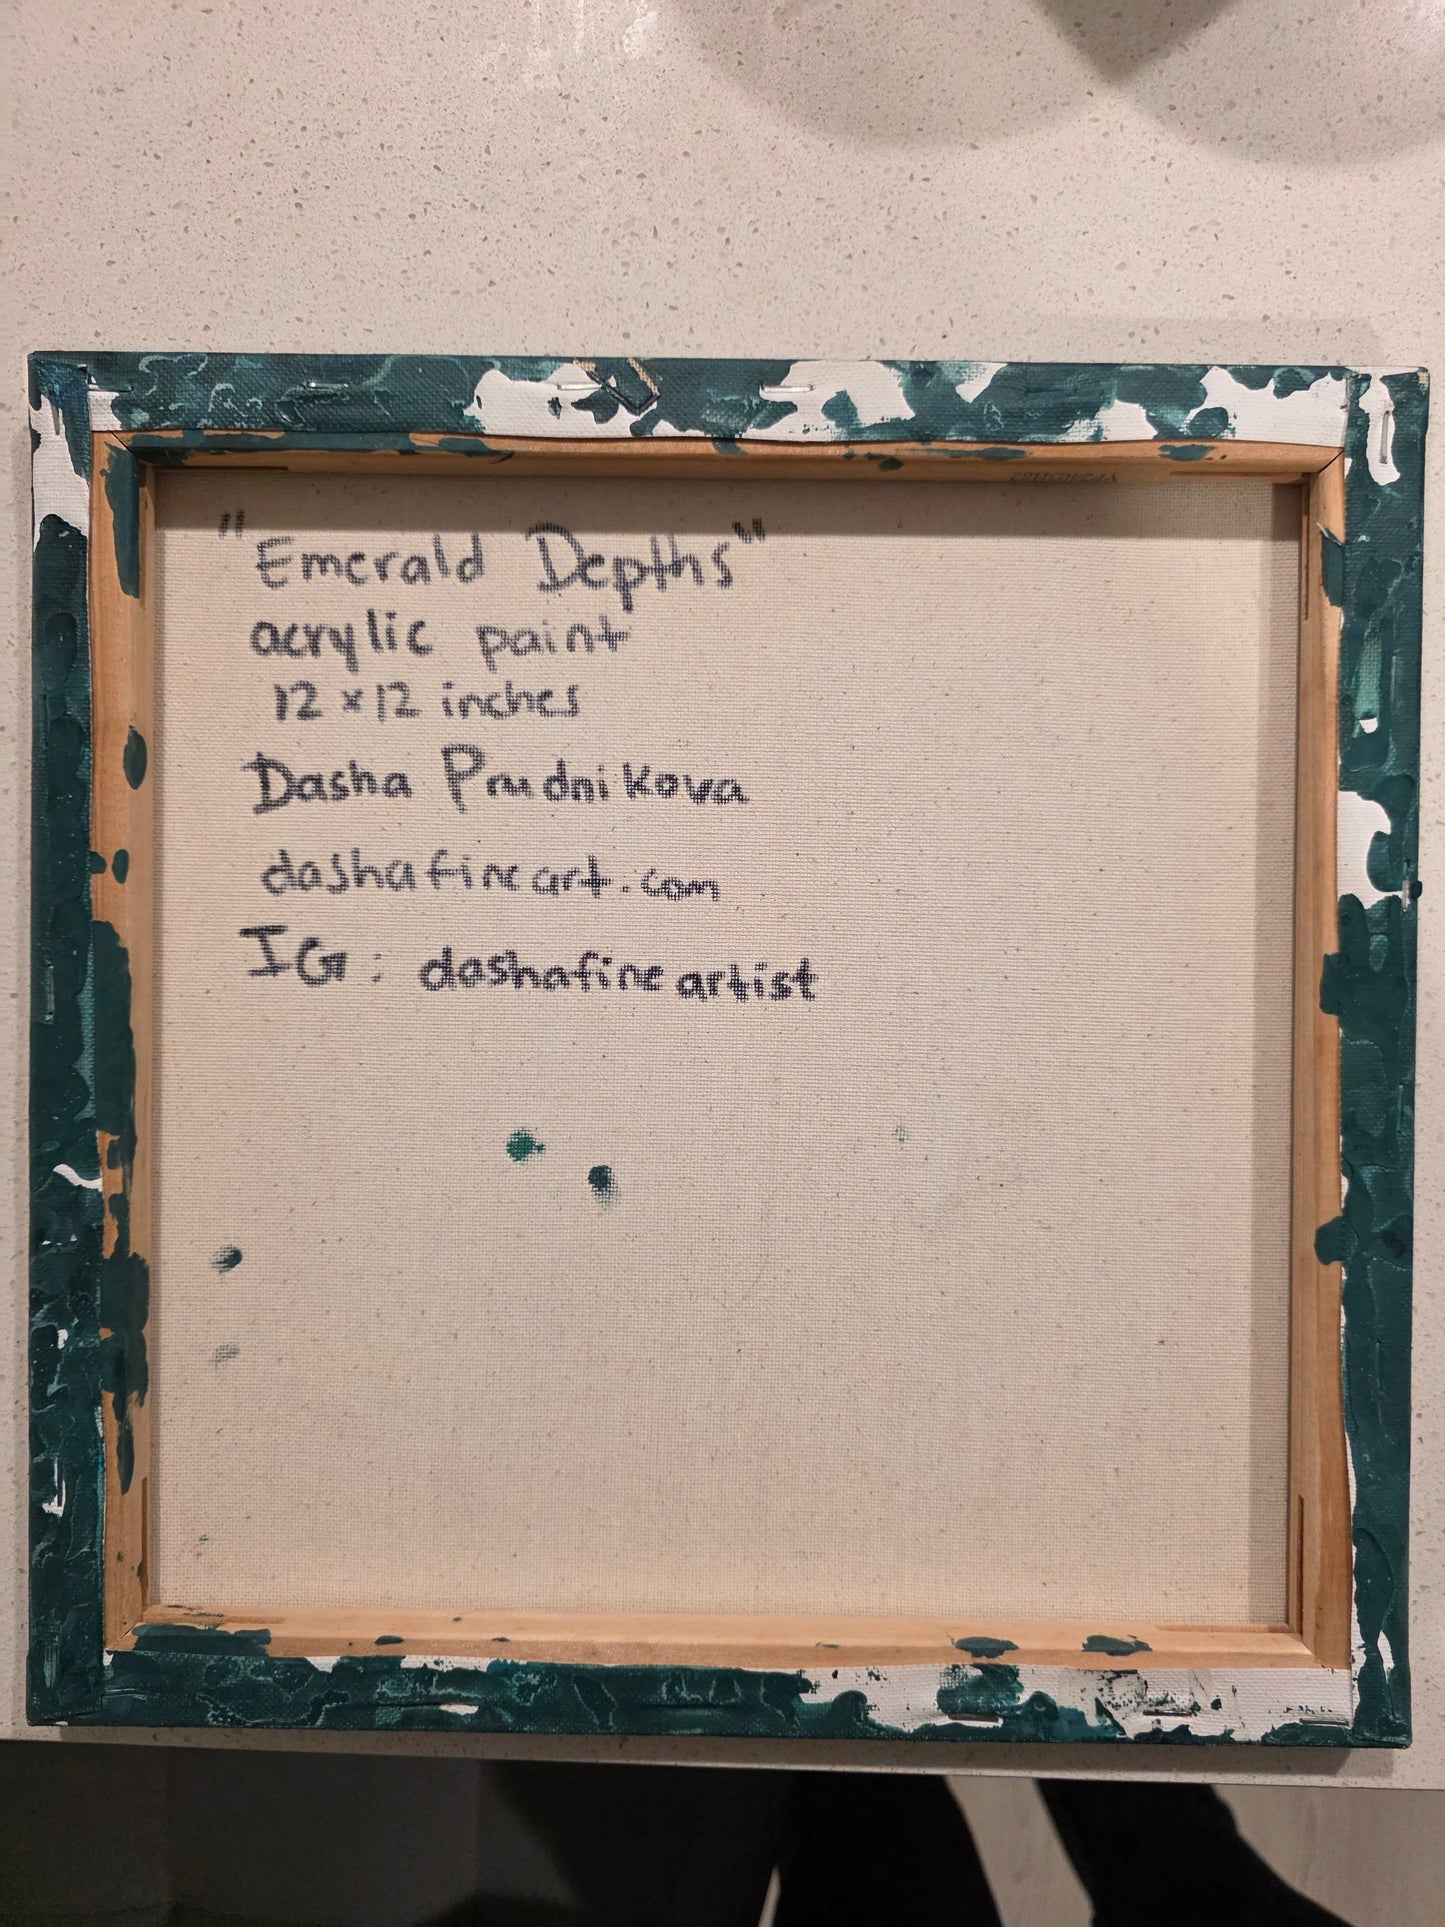 "Emerald Depths"
acrylic paint
12 x 12 inches
Dasha Prudnikova
dashafineart.com
IG: dashafineartist